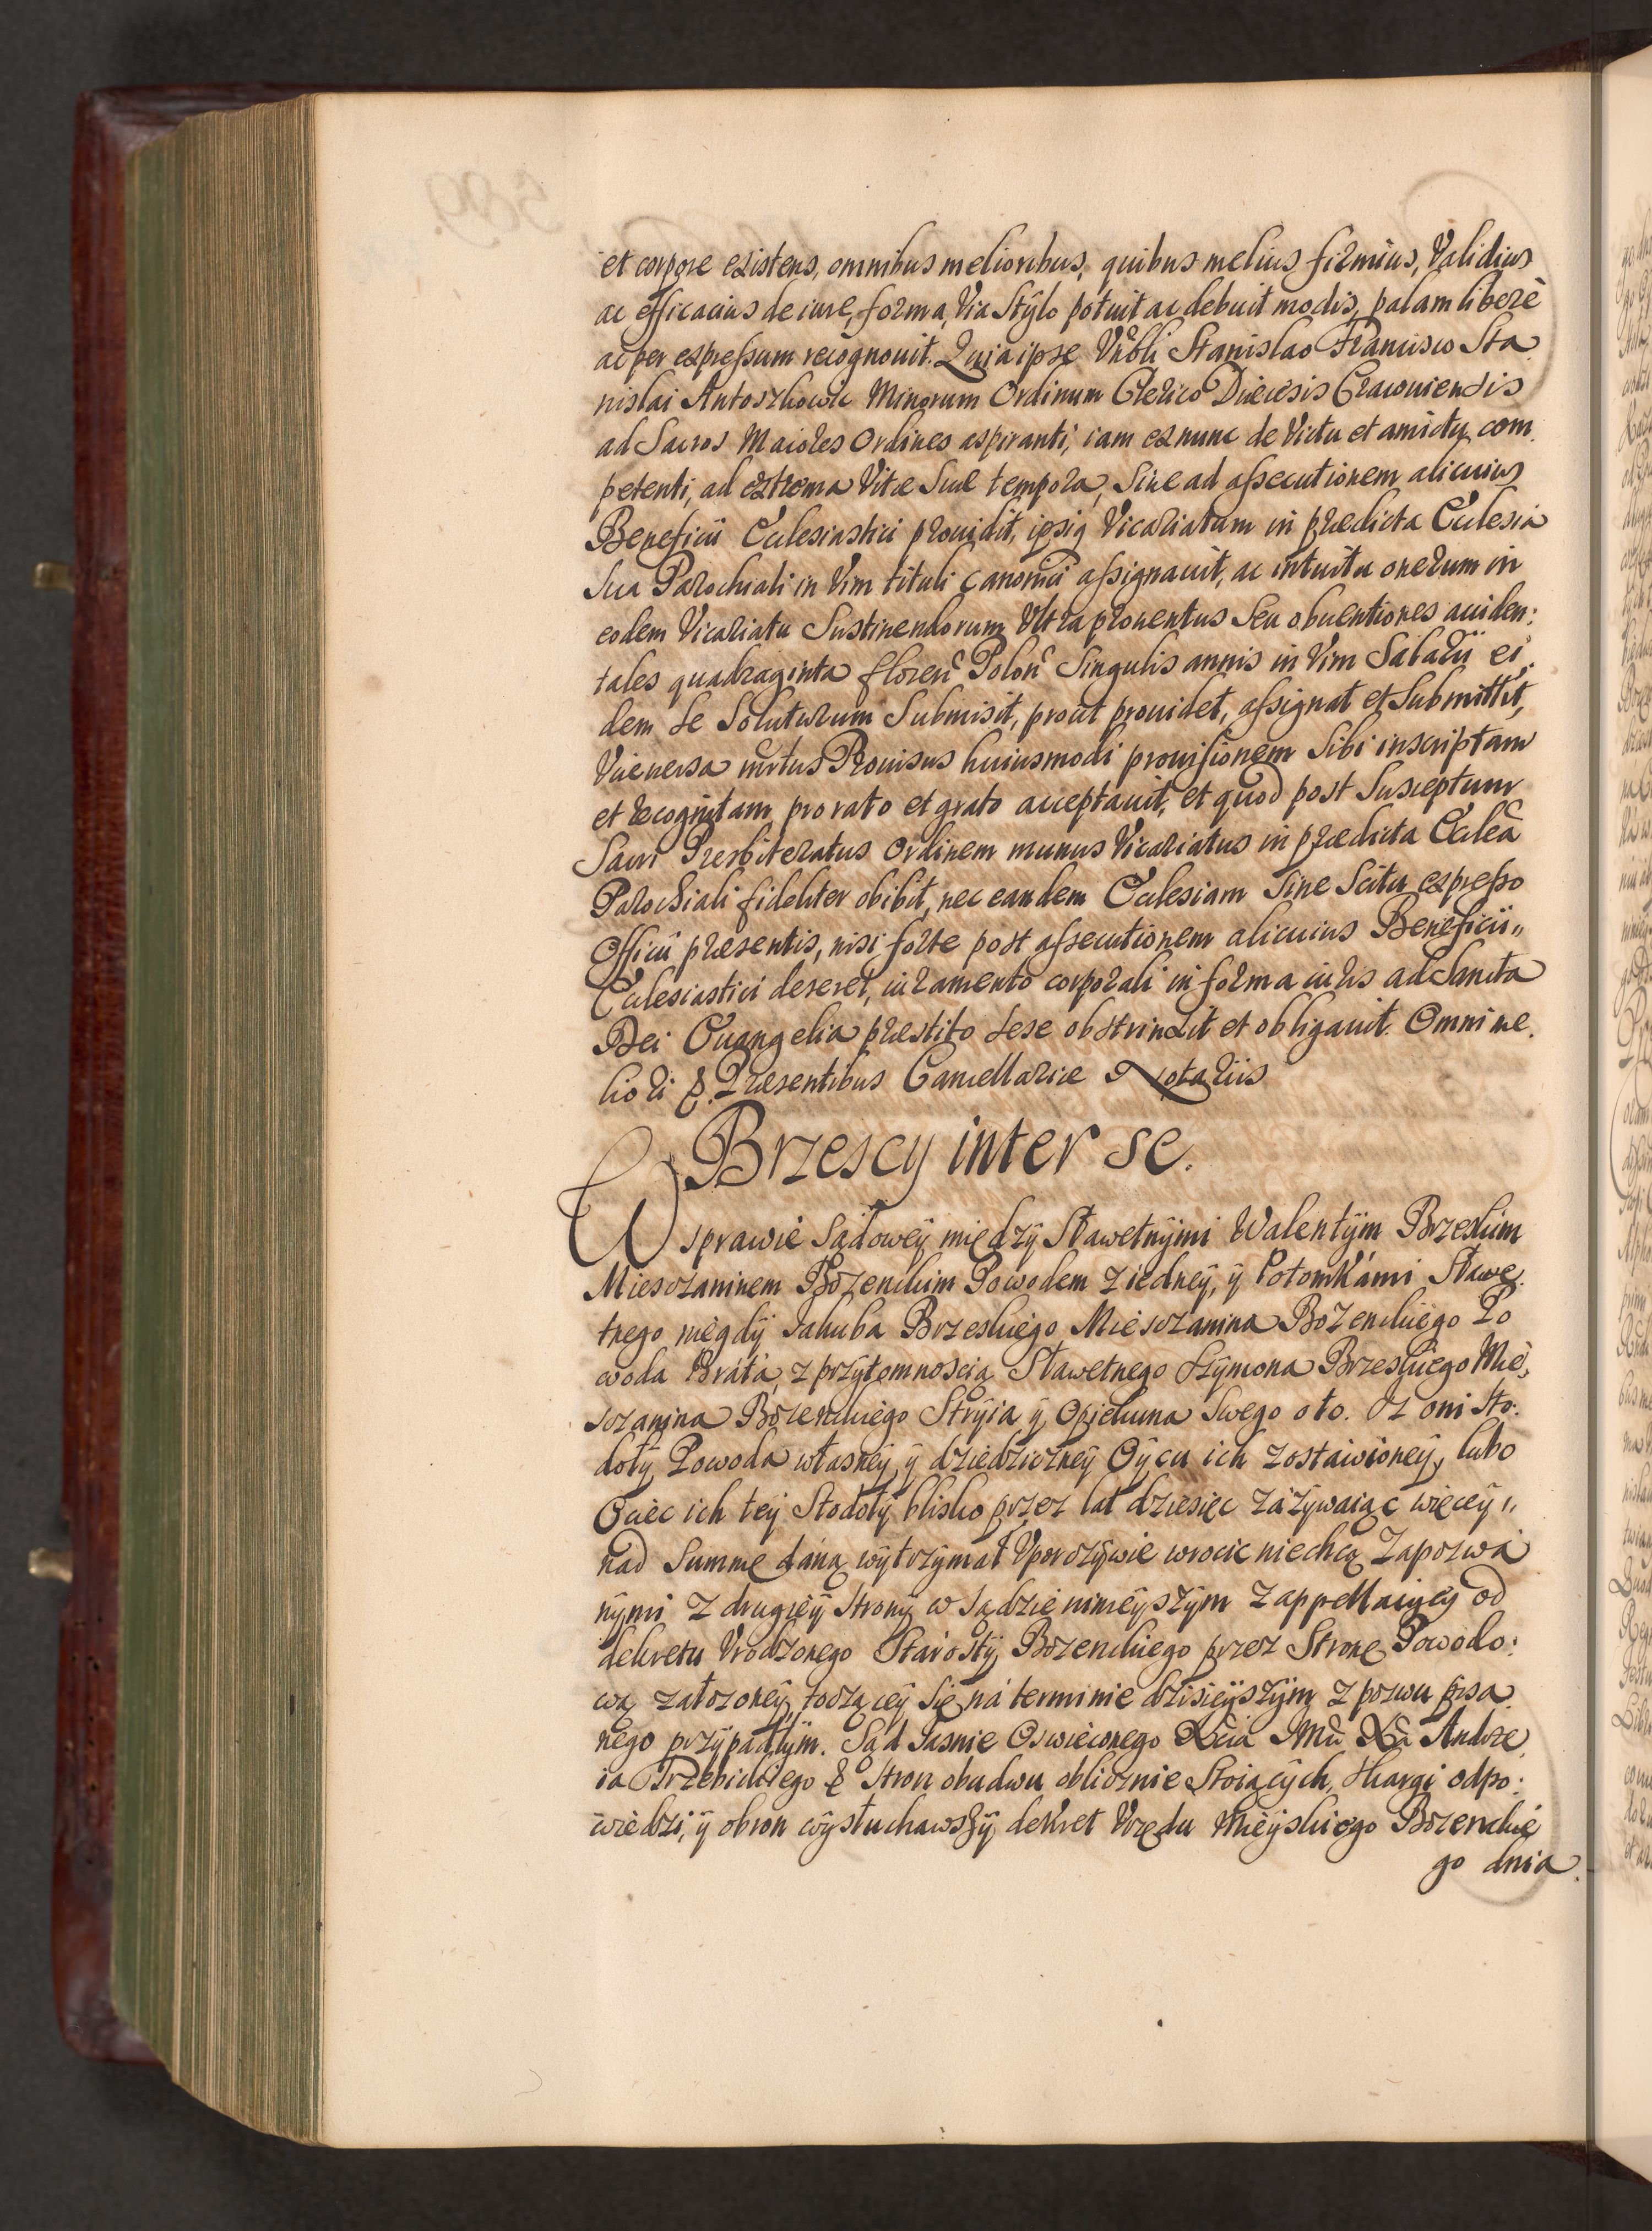 et corpore existens, omnibus melioribus, quibus melius, firmius, Validius
ac efficacius de iure, forma, Via Stÿlo potuit ac debuit modis, palam liberè
ac per expressum recognouit. Quia ipse Vnbli Stanislao Francisco Sta
nislai Antoszkowic Minorum Ordinum Clerico Diecesis Cracouiensis
ad Sacros Maiores Ordines aspiranti, iam ex nunc de Victu et amictu com
petenti, ad extrema Vitæ Suæ tempora, Siue ad assecutionem alicuius
Beneficii Ecclesiastici prouidit, ipsiq Vicariatum in prædicta Ecclesia
Sua Parochiali in Vim tituli canonici assignauit, ac intuitu onerum in
eodem Vicariatu Sustinendorum Vltra prouentus Seu obuentiones acciden:
tales quadraginta floren Polon Singulis annis in Vim Salarii ei
dem Se Soluturum Submisit, prout prouidet, assignat et Submittit,
Viceuersa mrtus Prouisus huiusmodi prouisionem Sibi inscriptam
et recognitam pro rato et grato acceptauit, et quod post Susceptum
Sacri Presbiteratus Ordinem munus Vicariatus in prædicta Ecclea
Parochiali fideliter obibit, nec eandem Ecclesiam Sine Scitu expresso
Officii præsentis, nisi forte post assecutionem alicuius Beneficii
Ecclesiastici deseret, iuramento corporali in forma iuris ad Sancta
Dei Euangelia præstito Sese obstrinxit et obligauit. Omni me
liori &. Præsentibus Cancellariæ Notariis
Brzescy inter se.
W sprawie Sądoweÿ międzÿ Sławetnÿmi Walentÿm Brzeskim
Miesczaninem Bozenckim Powodem z iedneÿ, ÿ Potomkámi Sławe
tnego niegdÿ Jakuba Brzeskiego Miesczanina Bozenckiego Po
woda Bráta, z przÿtomnoscią Sławetnego Szÿmona Brzeskiego Mie
sczanina Bozenckiego Strÿia ÿ Opiekuna Swego oto. Iz oni Sto:
dołÿ Powoda własneÿ ÿ dziedziczneÿ Oÿcu ich zostawioneÿ, lubo
Ociec ich teÿ Stodołÿ blisko przez lat dziesięc zazÿwaiąc więceÿ
nad Summę daną wÿtrzÿmał Vporczÿwie wrocic niechcą Zapozwa
nÿmi z drugieÿ Stronÿ w Sądzie ninieÿszÿm z appellacÿcy od
dekretu Vrodzonego Starostÿ Bozenckiego przez Stronę Powodo:
wą załozoneÿ, toczącey Się ná terminie dzisieÿszÿm z pozwu pisa
nego przÿpadłÿm. Sąd Jasnie Oswieconego Xcia JMci Xa Andrze
ia Trzebickiego & Stron obudwu oblicznie Stoiącÿch, Skargi odpo:
wiedzi, ÿ obron wÿsłuchawszÿ dekret Vrzędu Mieÿskiego Bozenckie
go dnia